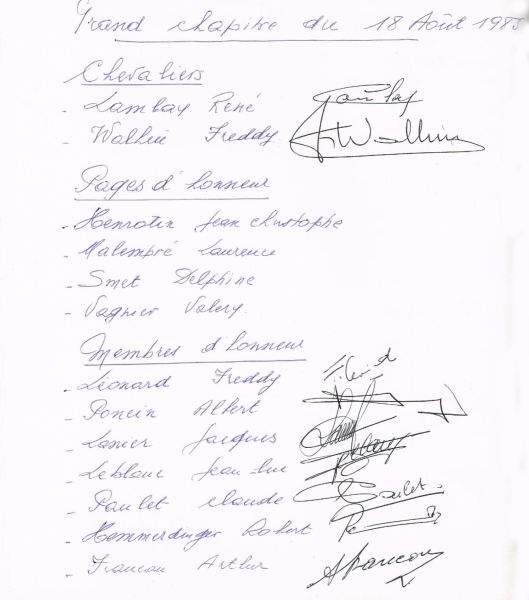 Grand chapitre du 18 Août 1985
Chevaliers
- Lambay René
- Wathieu Freddy
Pages d'honneur
- Henrotin Jean christophe
- Malempré Laurence
- Smet Delphine
- Vagnier Valery.
Membres d'honneur
- Léonard Freddy
- Poncin Albert
- Lanier Jacques
- Leblanc Jean Luc
- Paulet claude
- Hemmerdinger Robert
- Francou Arthur